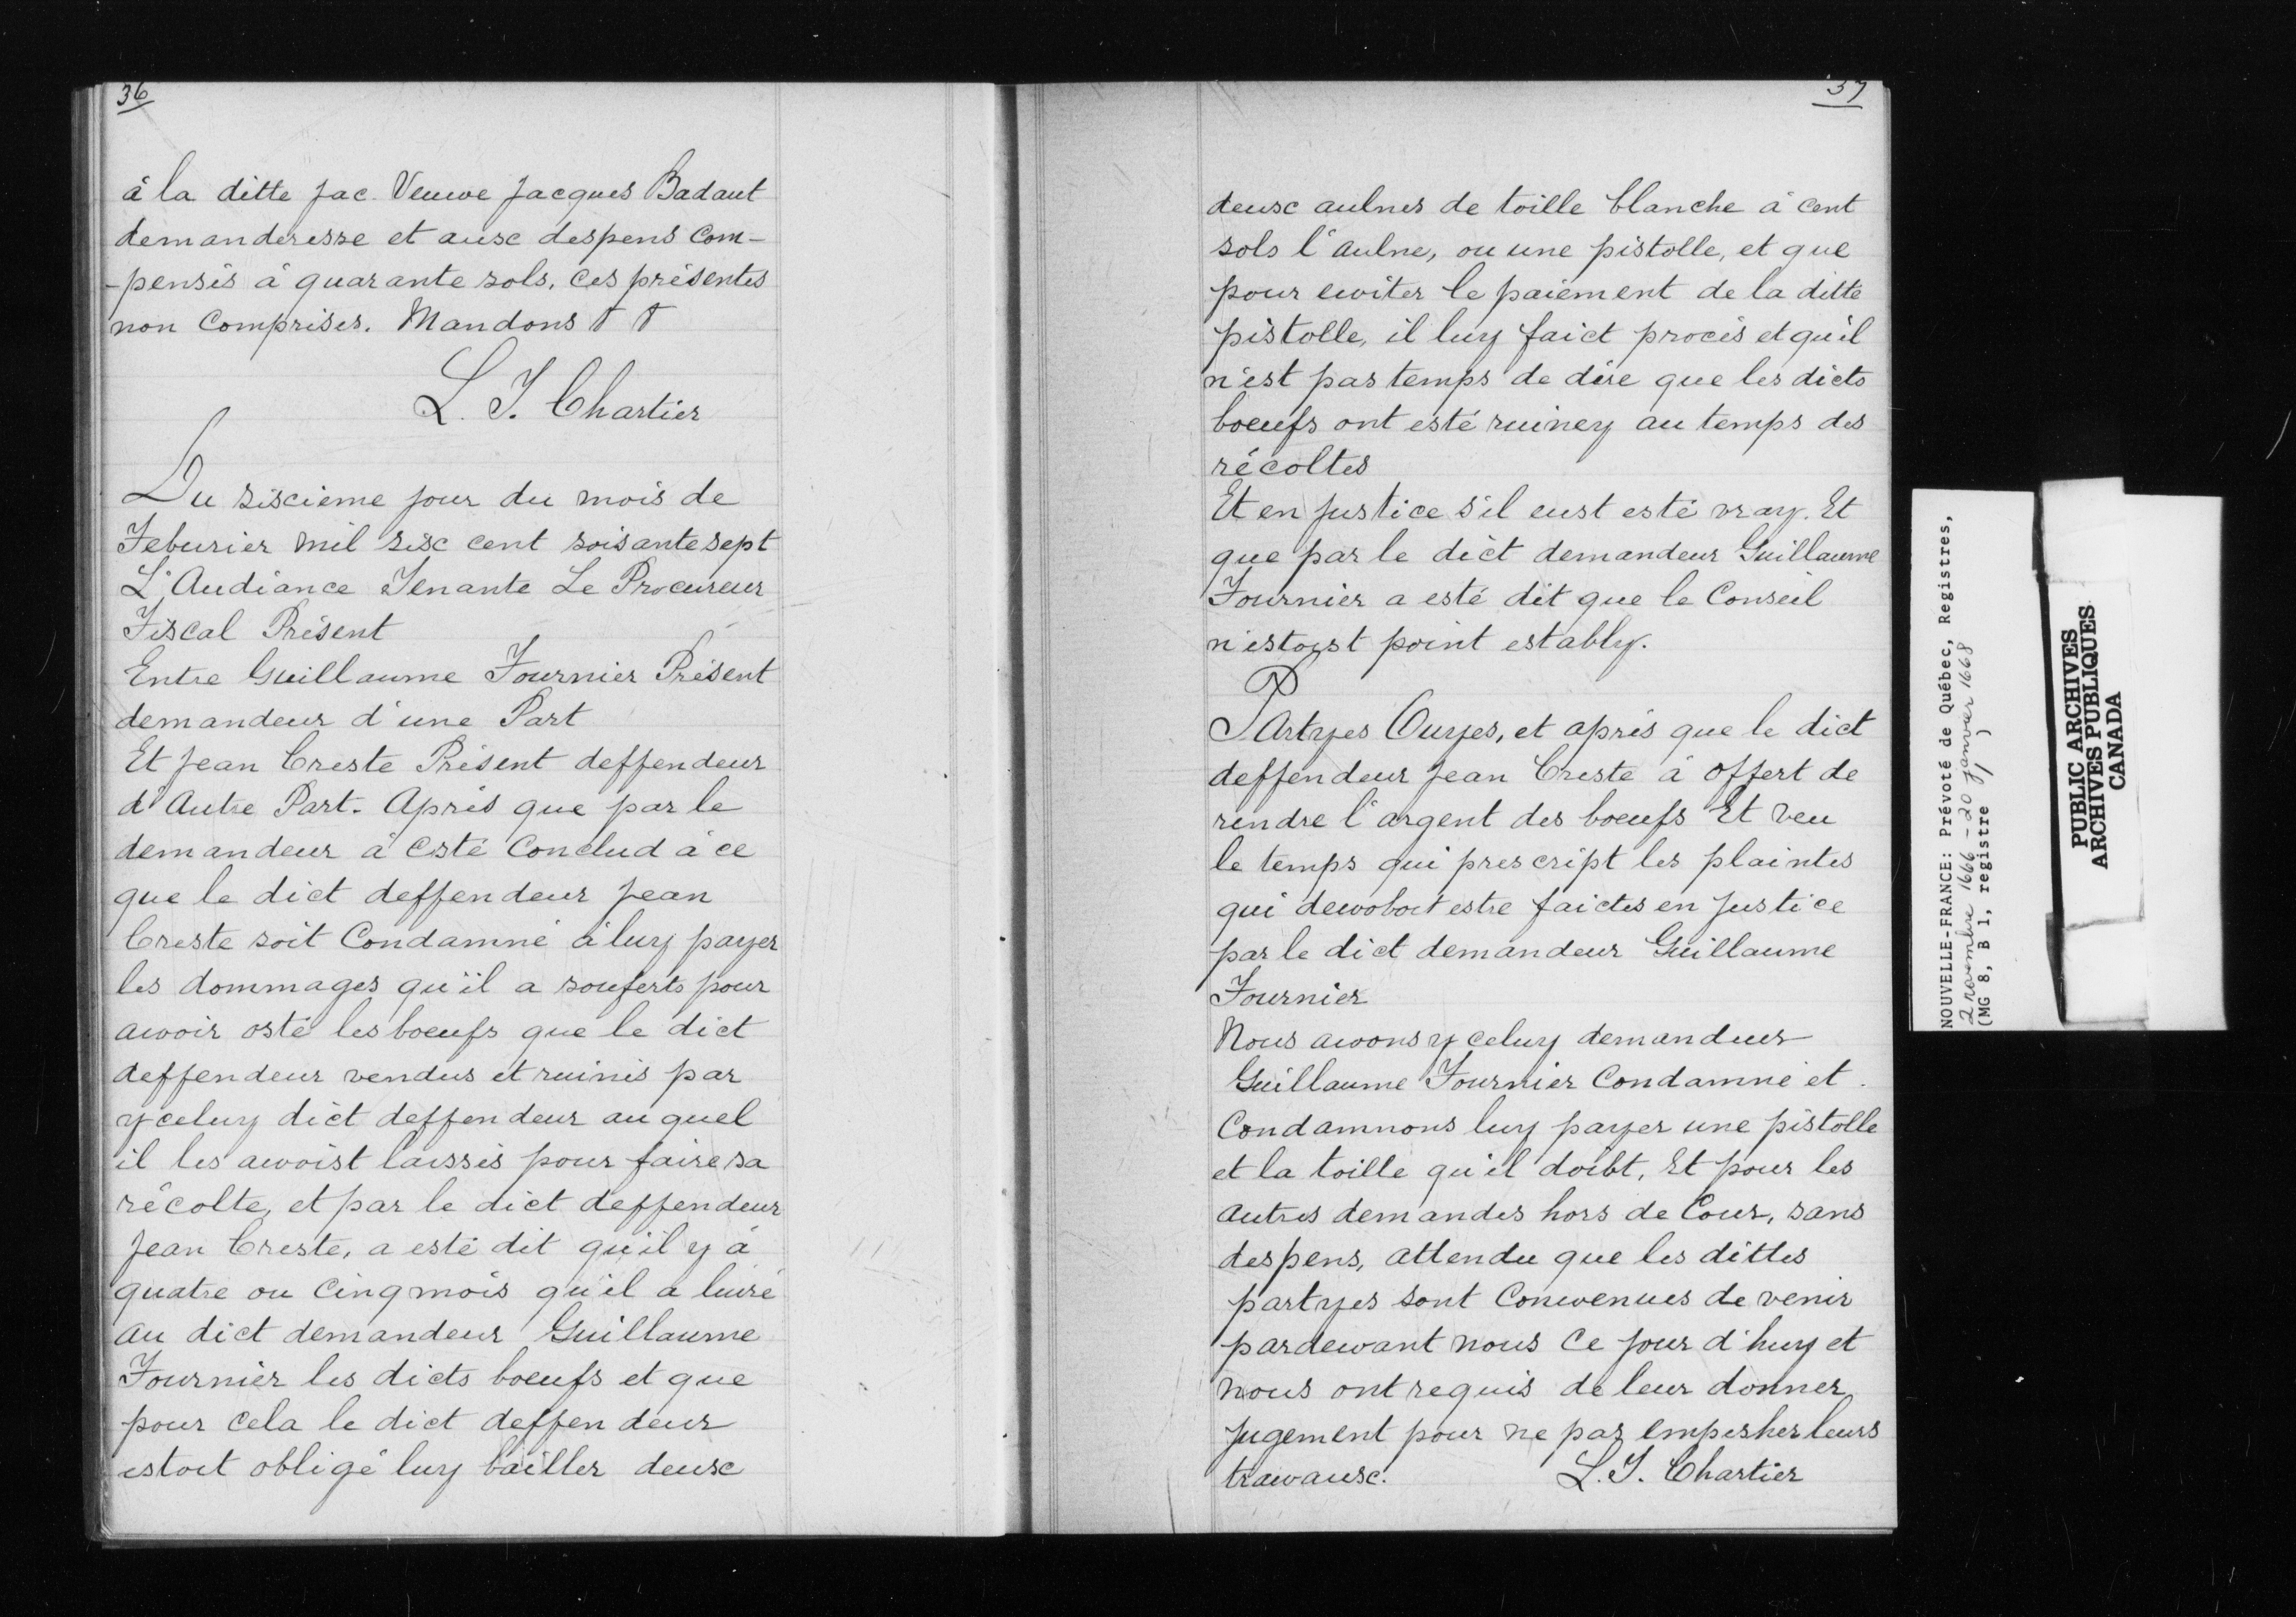 36
à la ditte Jac. Veuwe Jacques Badaut
demanderesse et ausc despens com-
-pensés à quarante sols, ces présentes
non Comprises. Mandons
L. T. Chartier
Du siscième jour du mois de
Feburier mil sisc cent soisante sept
L'Audiance Tenante Le Procureur
Fiscal Présent
Entre Guillaume Fournier Présent
demandeur d'une Part
Et Jean Creste Présent deffendeur
d'Autre Part. Après que par le
demandeur à Esté Conclud à ce
que le dict deffendeur Jean
Creste soit Condamné à luy payer
les dommages qu'il a souferts pour
awoir osté les boeufs que le dict
deffendeur vendus et ruinés par
yceluy dict deffendeur auquel
il les awoist laissés pour faire sa
récolte, et par le dict deffendeur
Jean Creste, a esté dit qu'il y à
quatre ou Cinq mois qu'il a liuré
au dict demandeur Guillaume
Fournier les dicts boeufs et que
pour cela le dict deffendeur
estoit obligé luy bailler deusc
37
deusc aulnes de toille blanche à cent
sols l'aulne, ou une pistolle, et que
pour ewiter le paiement de la ditte
pistolle, il luy faict procés et qu'il
n'est pas temps de dire que les dicts
boeufs ont esté ruiney au temps des
récoltes
Et en Justice s'il eust esté vray. Et
que par le dict demandeur Guillaume
Fournier a esté dit que le Conseil
n'estoist point estably.
PArtyes Ouyes, et après que le dict
deffendeur Jean Creste à offert de
rendre l'argent des boeufs Et veu
le temps qui prescript les plaintes
qui dewoboit estre faictes en Justice
par le dict demandeur Guillaume
Fournier
Nous awons yceluy demandeur
Guillaume Fournier Condamné et
Condamnons luy payer une pistolle
et la toille qu'il doibt, Et pour les
autres demandes hors de Cour, sans
despens, attendu que les dittes
partyes sont Conwenues de venir
pardewant nous Ce jour d'huy et
nous ont requis de leur donner
Jugement pour ne pas empesher leurs
trawausc. L. T. Chartier
NOUVELLE-FRANCE: Prévoté de Québec, Registres,
2 novembre 1666 - 20 janvier 1668
(MG 8, B 1, registre 1)
PUBLIC ARCHIVES
ARCHIVES PUBLIQUES
CANADA